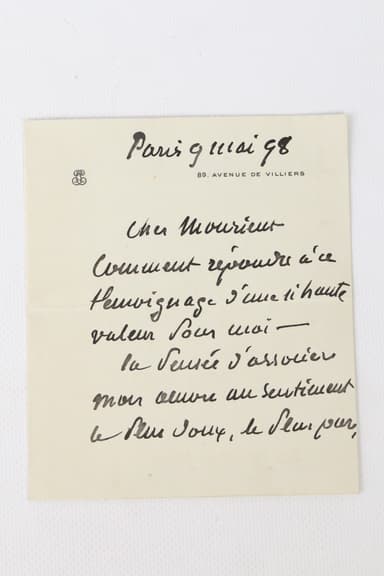 Paris 9 mai 98
89. AVENUE DE VILLIERS
Cher Monsieur
Comment répondre à ce
témoignage d'une si haute
valeur pour moi —
la pensée d'associer
mon oeuvre au sentiment
le plus doux, le plus pur,